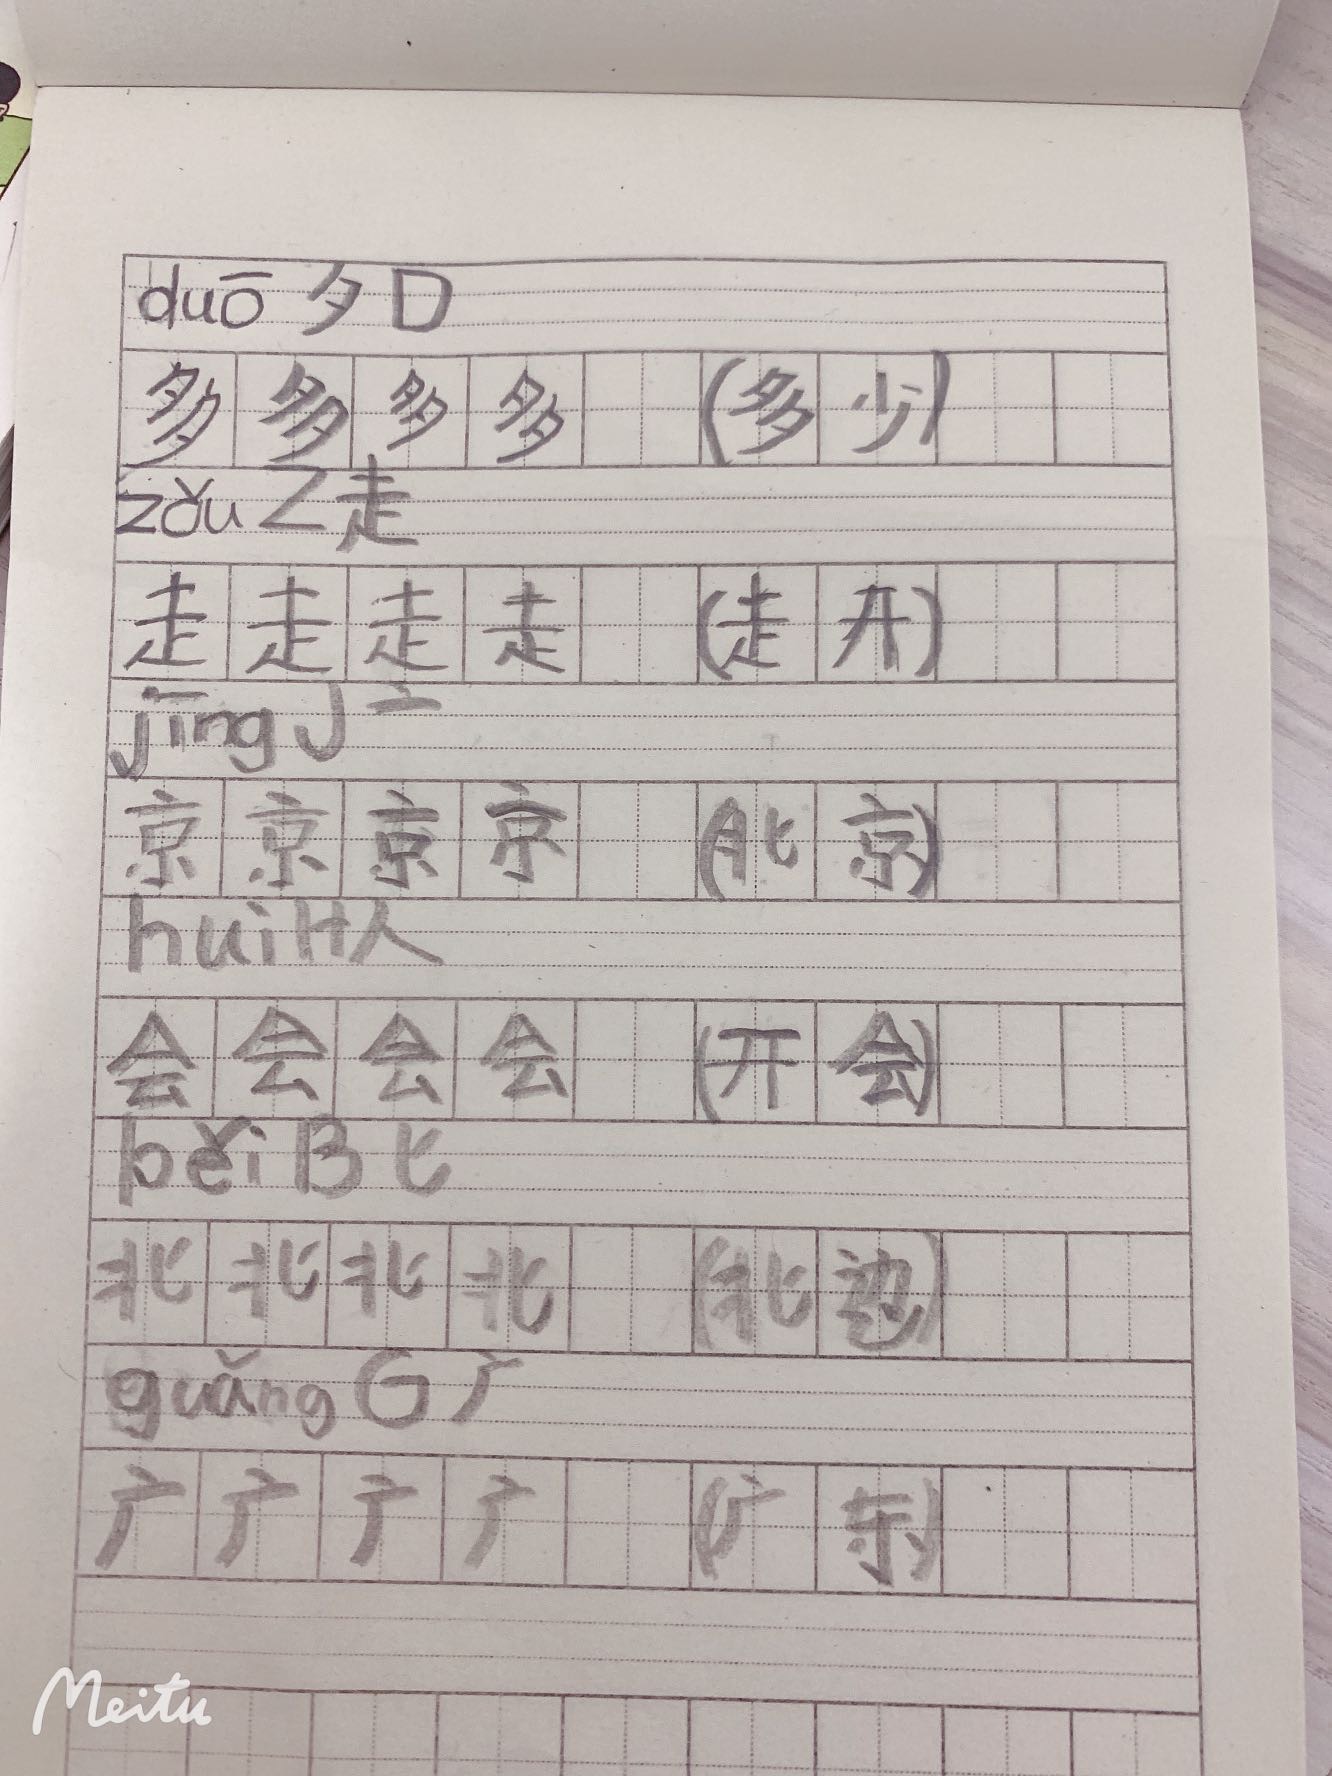 duō 夕 D
多 多 多 多 (多 少)
zǒu Z 走
走 走 走 走 (走 开)
jīng J 亠
京 京 京 京 (北 京)
hui H 人
会 会 会 会 (开 会)
běi B 匕
北 北 北 北 (北 边)
guǎng G 广
广 广 广 广 (广 东)
Meitu